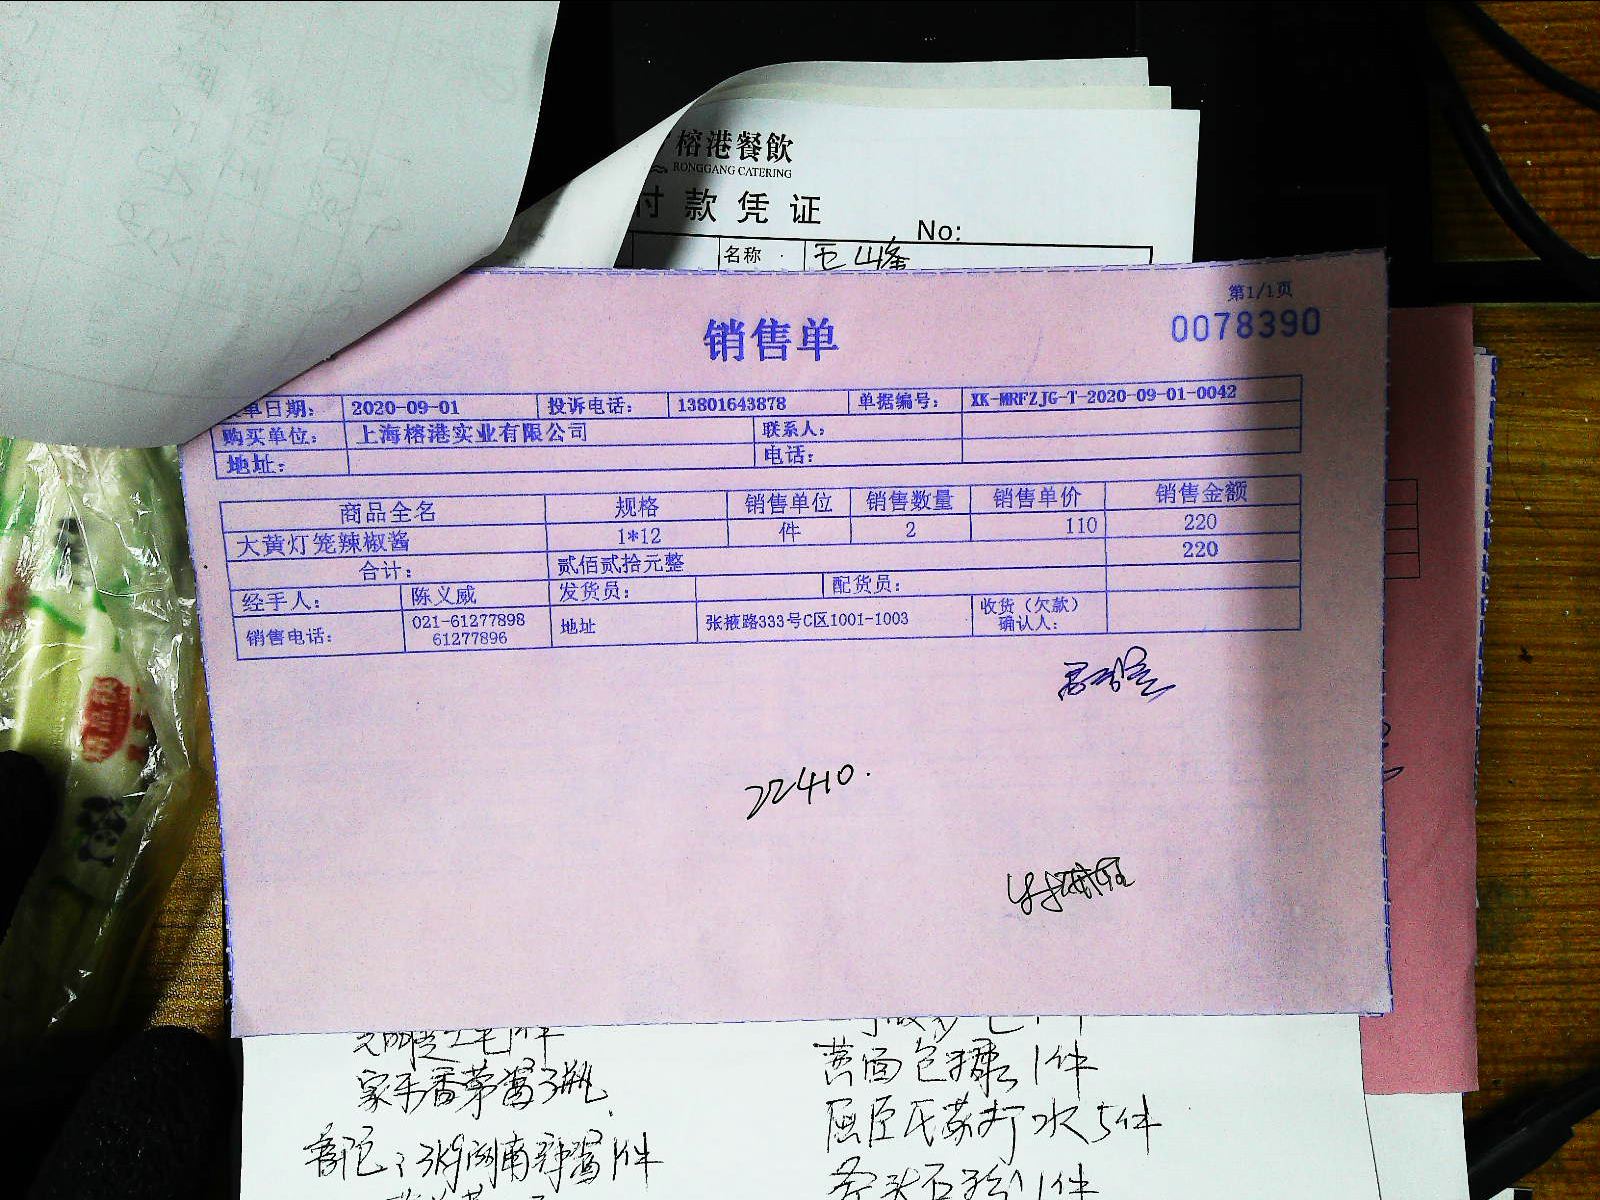 榕港餐飲
RONGGANG CATERING
付款凭证
No:
名称
第1/1页
销售单
0078390
单日期： 2020-09-01 投诉电话： 13801643878 单据编号： XK-MRFZJG-T-2020-09-01-0042
购买单位： 上海榕港实业有限公司 联系人：
地址： 电话：
商品全名 规格 销售单位 销售数量 销售单价 销售金额
大黄灯笼辣椒酱 1*12 件 2 110 220
合计： 贰佰贰拾元整 220
经手人： 陈义威 发货员： 配货员：
销售电话： 021-61277898 61277896 地址 张掖路333号C区1001-1003 收货（欠款）确认人：
22410.
家乐香茅酱3瓶
黄面包糠1件
屈臣氏苏打水5件
1件
1件